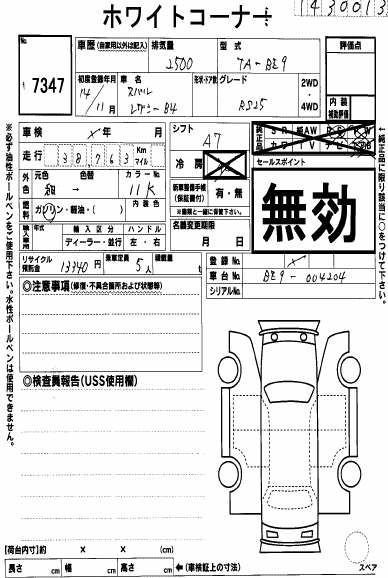 ホワイトコーナー
1430013
7347
車歴 (自家用以外は記入)
排気量
型式
評価点
2500
TA-BE9
初度登録年月
車名
形状・ドア数
グレード
2WD
・
4WD
内装
補助評価
14
11月
スバル
レガシーB4
RS25
車検
年
月
シフト
A7
純正品
走行
38763
Km
マイル
冷房
セールスポイント
外色
元色
色替
カラーNo.
紺→
11K
新車整備手帳
(保証書付)
有・無
※書類と一緒に保管下さい。
無効
燃料
ガソリン・軽油・( )
内装色
名義変更期限
月
日
輸入車
年式
輸入区分
ハンドル
ディーラー・並行
左・右
リサイクル
預託金
13340円
乗車定員
5人
積載量
t
登録No.
車台No.
BE9-004204
シリアルNo.
◎注意事項(修復・不具合箇所および状態等)
◎検査員報告(USS使用欄)
※必ず油性ボールペンをご使用下さい。水性ボールペンは使用できません。
←純正品に限り該当に○をつけて下さい。
【荷台内寸】約
×
×
(cm)
長さ
cm
幅
cm
高さ
cm
←(車検証上の寸法)
スペア